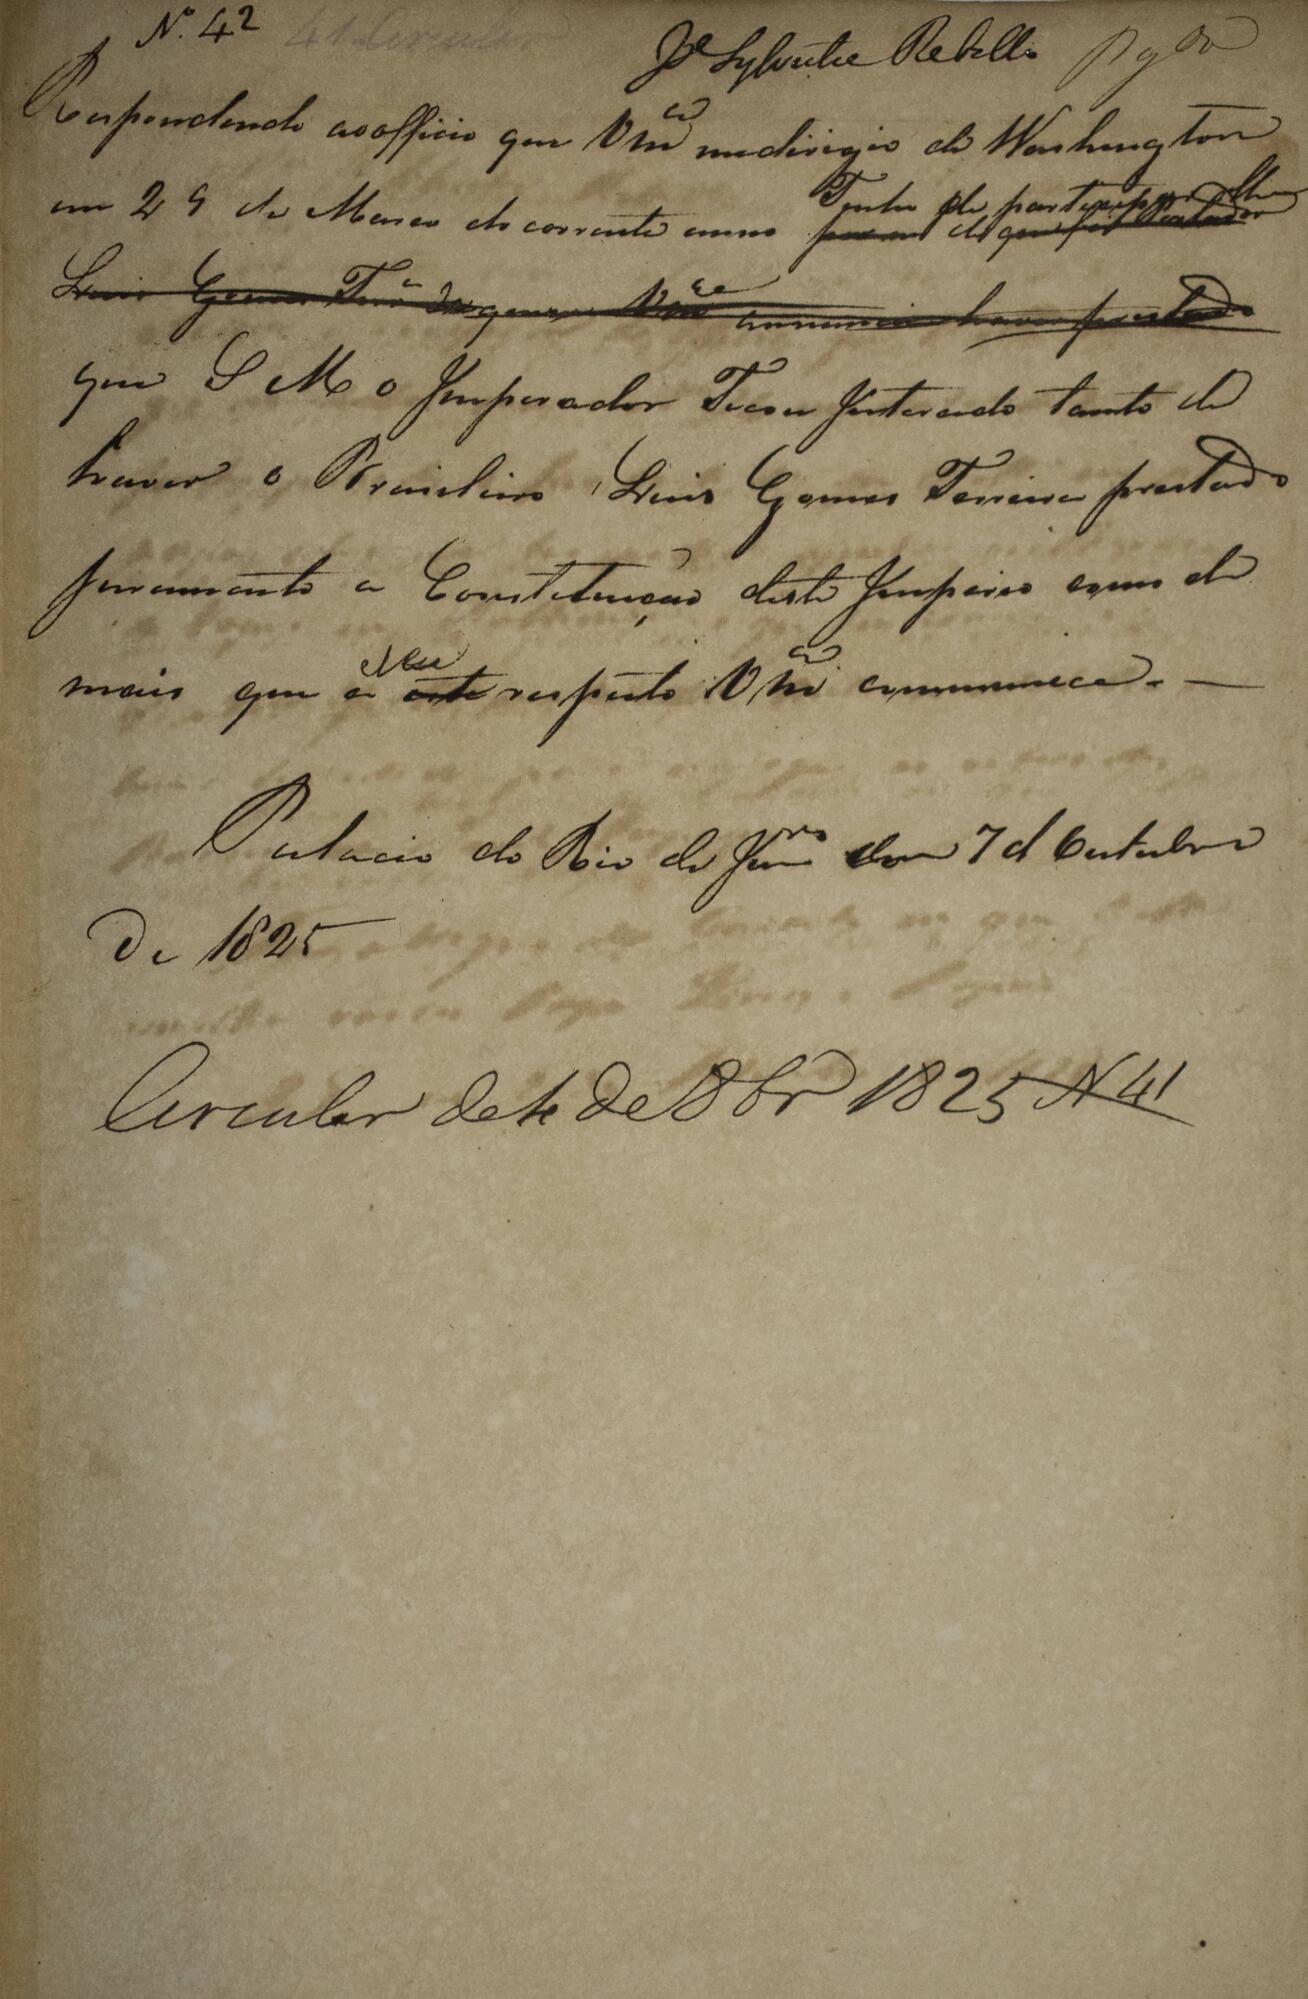 Nº 42
Jᵉ Sylvestre Rebello
Respondendo ao officio que Vmᶜᵉ me dirigio de Washington
em 29 de Março do corrente anno Tenho de participar lhe
Luis Gomes Ferrᵃ Vmᶜᵉ annuncia haver prestado
que S M o Imperador Ficou Inteirado tanto de
haver o Brasileiro Luis Gomes Ferreira prestado
juramento a Constituição deste Imperio como do
mais que a este respeito Vmᶜᵉ communica. —
Palacio do Rio de Janʳᵒ em 7 d Outubro
de 1825
Circular de de 8bʳᵒ 1825 N 41